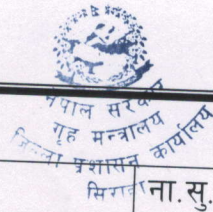 नेपाल सरकार
गृह मन्त्रालय
जिल्ला प्रशासन कार्यालय
सिराहा
ना. सु.